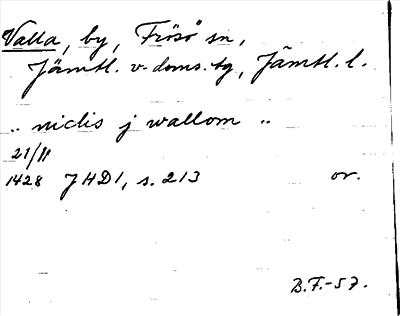 Valla, by, Frösö sn,
Jämtl. v. doms. tg, Jämtl. l.
„ niclis j wallom „
21/11
1428 JHD1, s. 213 or.
B.F.-57.